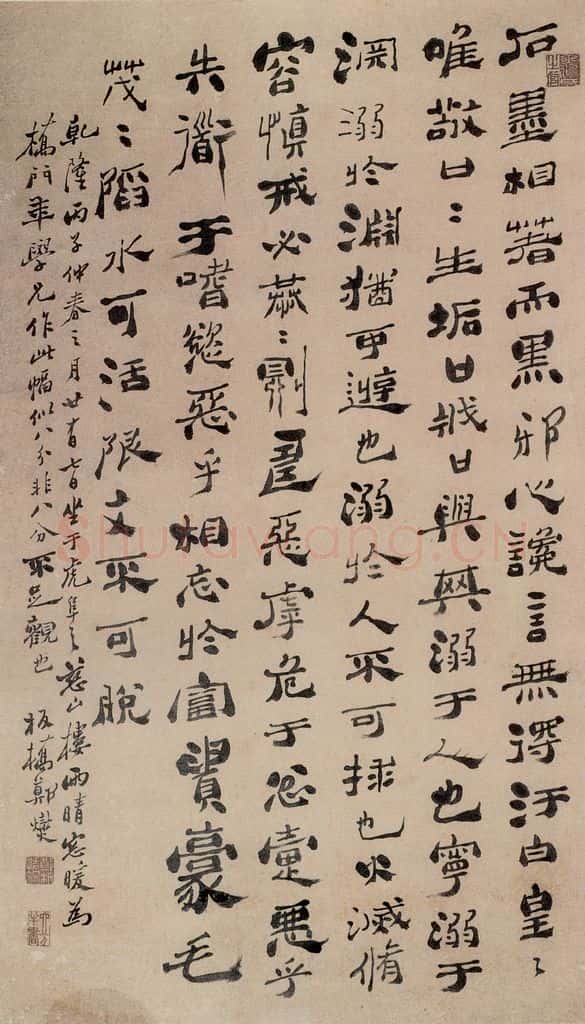 石墨相著而黑邪心讒言無得汙白皇〻
唯敬口〻生垢口戕口與其溺于人也寧溺于
淵溺於淵猶可遊也溺於人不可捄也火滅脩
容慎戒必恭〻則壽惡虖危于忿疐惡乎
失道于嗜慾惡乎相忘於富貴豪毛
茂〻陷水可活〻陷文不可脫
乾隆丙子仲春之月廿有七日坐于虎阜之山樓雨晴窓暖為
橋門年學兄作此幅似八分非八分不足觀也 板橋鄭燮
Shufawang.CN